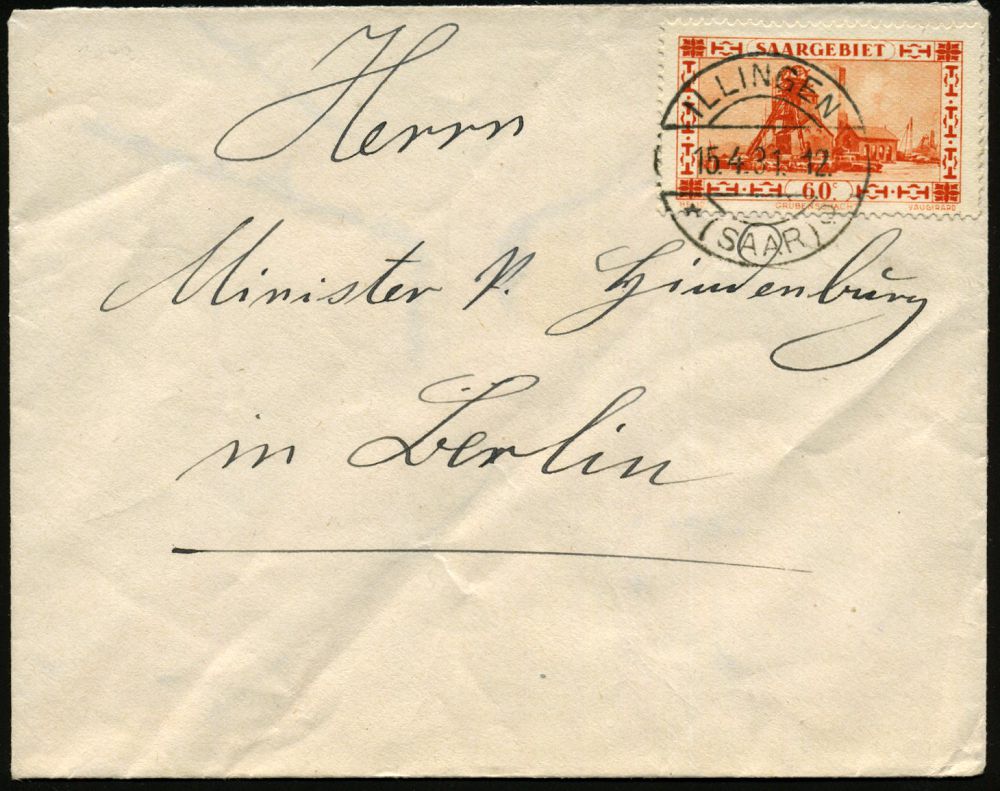 SAARGEBIET
ILLINGEN
15.4.31. 12
60c
GRUBENSCHACHT
VAUGIRARD
* (SAAR) a
Herrn
Minister v. Hindenburg
in Berlin